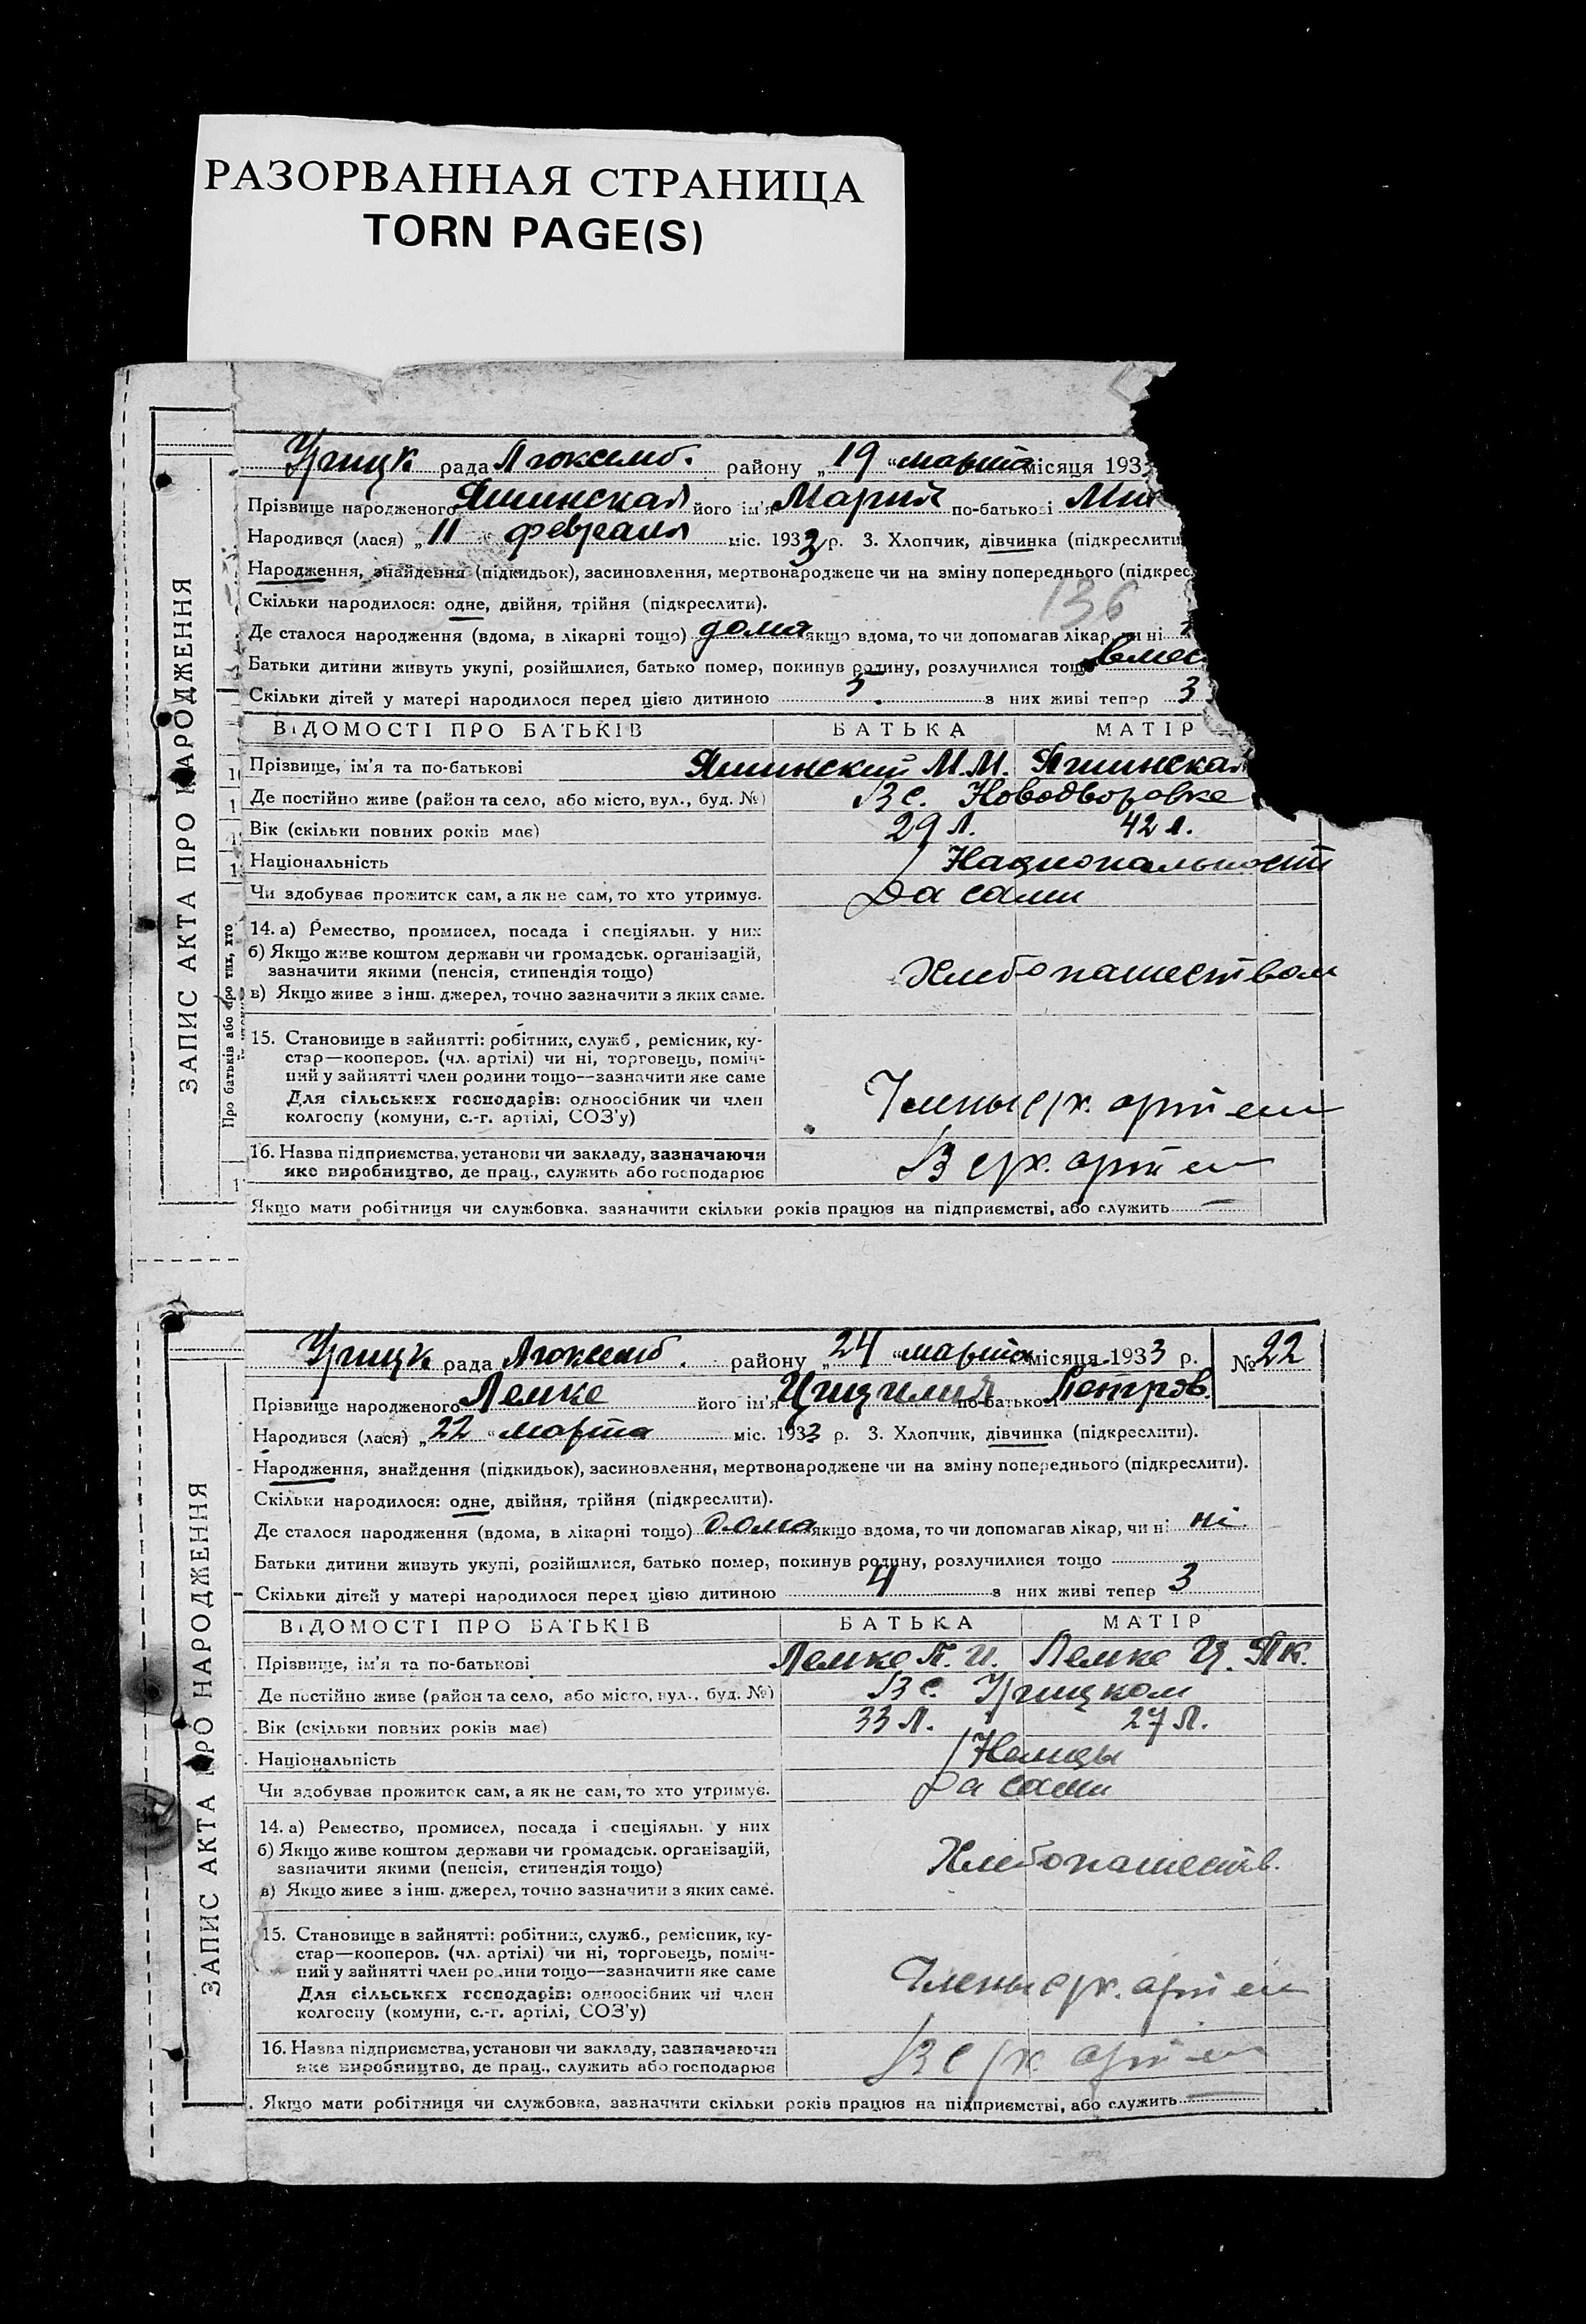 РАЗОРВАННАЯ СТРАНИЦА
TORN PAGE(S)
ЗАПИС АКТА ПРО НАРОДЖЕННЯ
Урицк рада Люксемб. району „19“ марта місяця 193
Прізвище народженого Яшинская його ім'я Мария по-батькові Мих
Народився (лася) „11“ февраля міс. 1933 р. 3. Хлопчик, дівчинка (підкреслити
Народження, знайдення (підкидьок), засиновлення, мертвонароджене чи на зміну попереднього (підкрес
136
Скільки народилося: одне, двійня, трійня (підкреслити).
Де сталося народження (вдома, в лікарні тощо) дома якщо вдома, то чи допомагав лікар, чи ні
Батьки дитини живуть укупі, розійшлися, батько помер, покинув родину, розлучилися тощо вмес
Скільки дітей у матері народилося перед цією дитиною 5 з них живі тепер 3
ВІДОМОСТІ ПРО БАТЬКІВ БАТЬКА МАТІР
Прізвище, ім'я та по-батькові Яшинский М.М. Яшинская
Де постійно живе (район та село, або місто, вул., буд. №) В с. Новодворовке
Вік (скільки повних років має) 29 л. 42 л.
Національність Национальности
Чи здобуває прожиток сам, а як не сам, то хто утримує. Да сами
Про батьків або про тих, хто
14. а) Ремество, промисел, посада і спеціяльн. у них
б) Якщо живе коштом держави чи громадськ. організацій,
зазначити якими (пенсія, стипендія тощо) Хлебопашеством
в) Якщо живе з інш. джерел, точно зазначити з яких саме.
15. Становище в зайнятті: робітник, служб., ремісник, ку-
стар—кооперов. (чл. артілі) чи ні, торговець, поміч-
ний у зайнятті член родини тощо—зазначити яке саме
Для сільських господарів: одноосібник чи член
колгоспу (комуни, с.-г. артілі, СОЗ'у) Члены с/х. артели
16. Назва підприємства, установи чи закладу, зазначаючи
яке виробництво, де прац., служить або господарює В с/х. артели
Якщо мати робітниця чи службовка, зазначити скільки років працює на підприємстві, або служить —
ЗАПИС АКТА ПРО НАРОДЖЕННЯ
Урицк рада Люксемб. району „24“ марта місяця 1933 р. № 22
Прізвище народженого Лемке його ім'я Цицилия по-батькові Петров.
Народився (лася) „22“ марта міс. 1933 р. 3. Хлопчик, дівчинка (підкреслити).
Народження, знайдення (підкидьок), засиновлення, мертвонароджене чи на зміну попереднього (підкреслити).
Скільки народилося: одне, двійня, трійня (підкреслити).
Де сталося народження (вдома, в лікарні тощо) дома якщо вдома, то чи допомагав лікар, чи ні ні.
Батьки дитини живуть укупі, розійшлися, батько помер, покинув родину, розлучилися тощо
Скільки дітей у матері народилося перед цією дитиною 4 з них живі тепер 3
ВІДОМОСТІ ПРО БАТЬКІВ БАТЬКА МАТІР
Прізвище, ім'я та по-батькові Лемке П. И. Лемке
Де постійно живе (район та село, або місто, вул., буд. №) В с. Урицком
Вік (скільки повних років має) 33 л. 27 л.
Національність Немцы
Чи здобуває прожиток сам, а як не сам, то хто утримує. Да сами
14. а) Ремество, промисел, посада і спеціяльн. у них
б) Якщо живе коштом держави чи громадськ. організацій,
зазначити якими (пенсія, стипендія тощо) Хлебопашеств.
в) Якщо живе з інш. джерел, точно зазначити з яких саме.
15. Становище в зайнятті: робітник, служб., ремісник, ку-
стар—кооперов. (чл. артілі) чи ні, торговець, поміч-
ний у зайнятті член родини тощо—зазначити яке саме
Для сільських господарів: одноосібник чи член
колгоспу (комуни, с.-г. артілі, СОЗ'у) Члены с/х. артели
16. Назва підприємства, установи чи закладу, зазначаючи
яке виробництво, де прац., служить або господарює В с/х. артели
Якщо мати робітниця чи службовка, зазначити скільки років працює на підприємстві, або служить —